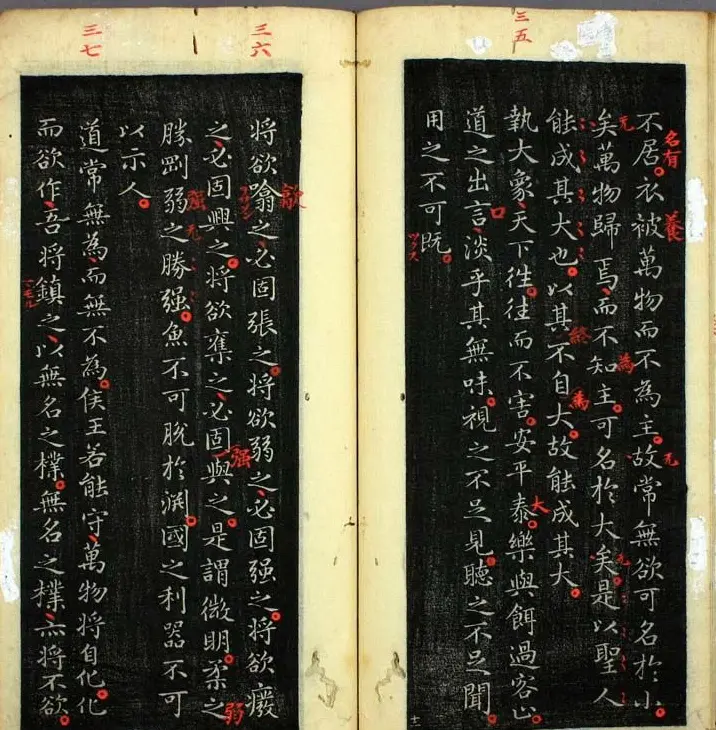 三五
名有
養
不居。衣被萬物而不為主。故常無欲可名於小。
矣萬物歸焉、而不知主。可名於大矣。是以聖人
為
能成其大也。以其不自大。故能成其大。
終
為
執大象、天下往。往而不害。安平泰。樂與餌過客止。
大
道之出言、淡乎其無味。視之不足見。聽之不足聞。
口
用之不可既。
ツクス
十一
三六
歙
將欲噏之、必固張之。將欲弱之、必固强之。將欲廢
之、必固興之。將欲奪之、必固與之。是謂微明。柔之
强
弱
勝剛弱之勝强。魚不可脫於淵。國之利器不可
强
以示人。
三七
道常無為、而無不為。侯王若能守、萬物將自化。化
而欲作、吾將鎮之、以無名之樸。無名之樸、亦將不欲。